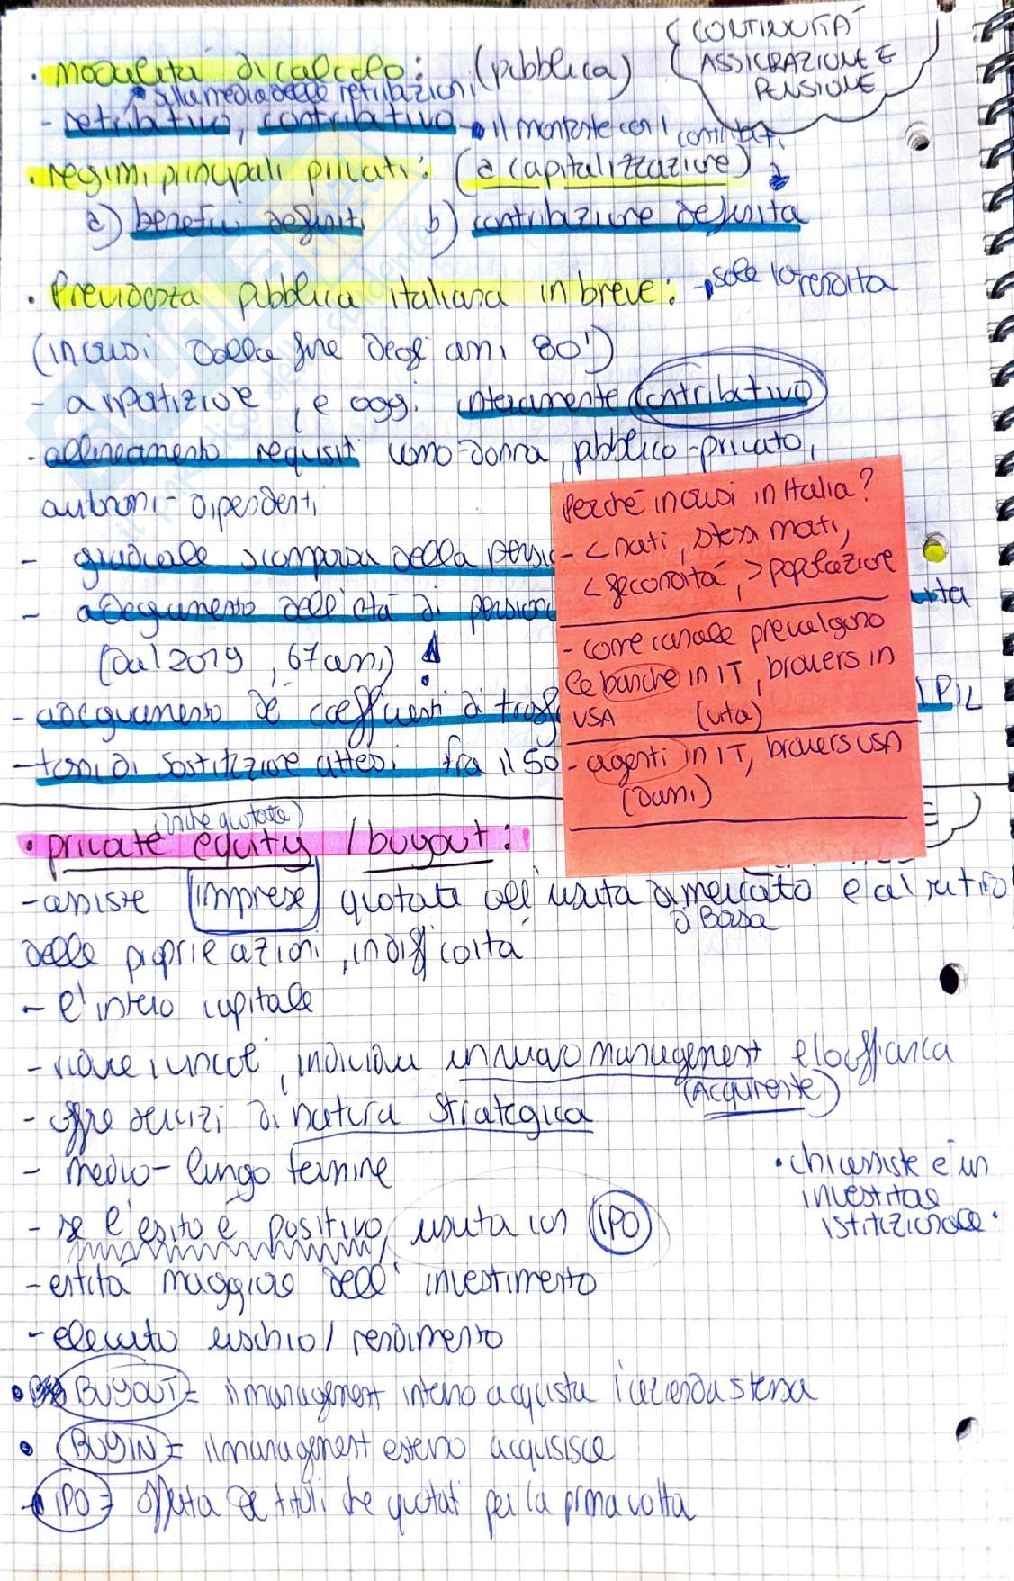 CONTINUITÀ
ASSICRAZIONE E
PENSIONE
• modalità di calcolo: (pubblica)
sulla media delle retribuzioni
- retributivo, contributivo → il montante con i contributi
• regimi principali privati: (a capitalizzazione)
a) benefici definiti b) contribuzione definita
• Previdenza pubblica italiana in breve: → solo la rendita
(in crisi dalla fine degli anni 80')
- a ripartizione, e oggi interamente contributivo
- allineamento requisiti uomo-donna, pubblico-privato,
autonomi-dipendenti
- graduale scomparsa della
- adeguamento dell'età di
(dal 2019, 67 anni)
- adeguamento dei coefficienti di PIL
- tassi di sostituzione attesi fra il 50
Perché in crisi in Italia?
- < nati, stessi morti,
< fecondità, > popolazione
- come canale prevalgono
le banche in IT, brokers in
USA (vita)
- agenti in IT, brokers USA
(danni)
(anche quotate)
• private equity / buyout:
- assiste imprese quotate all'uscita di mercato e al ritiro
di Borsa
delle proprie azioni, in difficoltà
- l'intero capitale
- individua un nuovo management e lo affianca
(Acquirente)
- offre servizi di natura strategica
- medio-lungo termine
• chi assiste è un
investitore
istituzionale.
- se l'esito è positivo, uscita con IPO
- entità maggiore dell'investimento
- elevato rischio/rendimento
• BUYOUT = il management interno acquista l'azienda stessa
• BUYIN = il management esterno acquisisce
• IPO = offerta di titoli che quotati per la prima volta